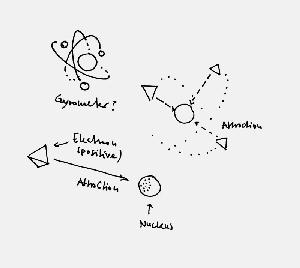 Gyrometer?
Attraction
Electron
(positive)
Attraction
Nucleus